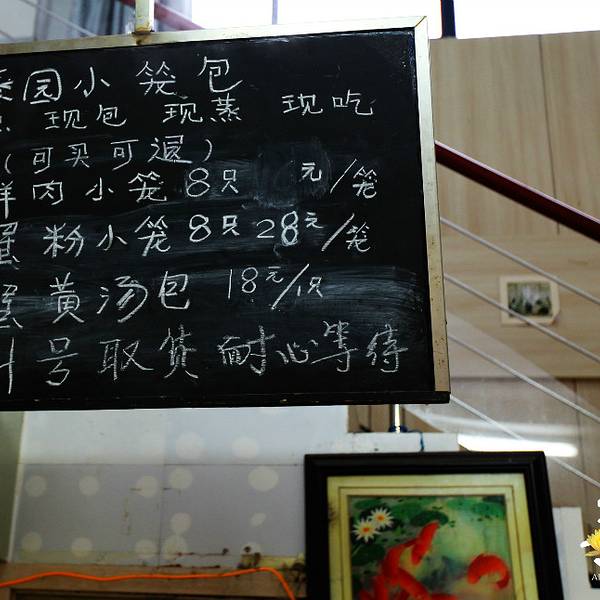 园小笼包
现包 现蒸 现吃
(可买可退)
鲜肉小笼8只 元/笼
蟹粉小笼8只28元/笼
蟹黄汤包 18元/只
叫号取货 耐心等待